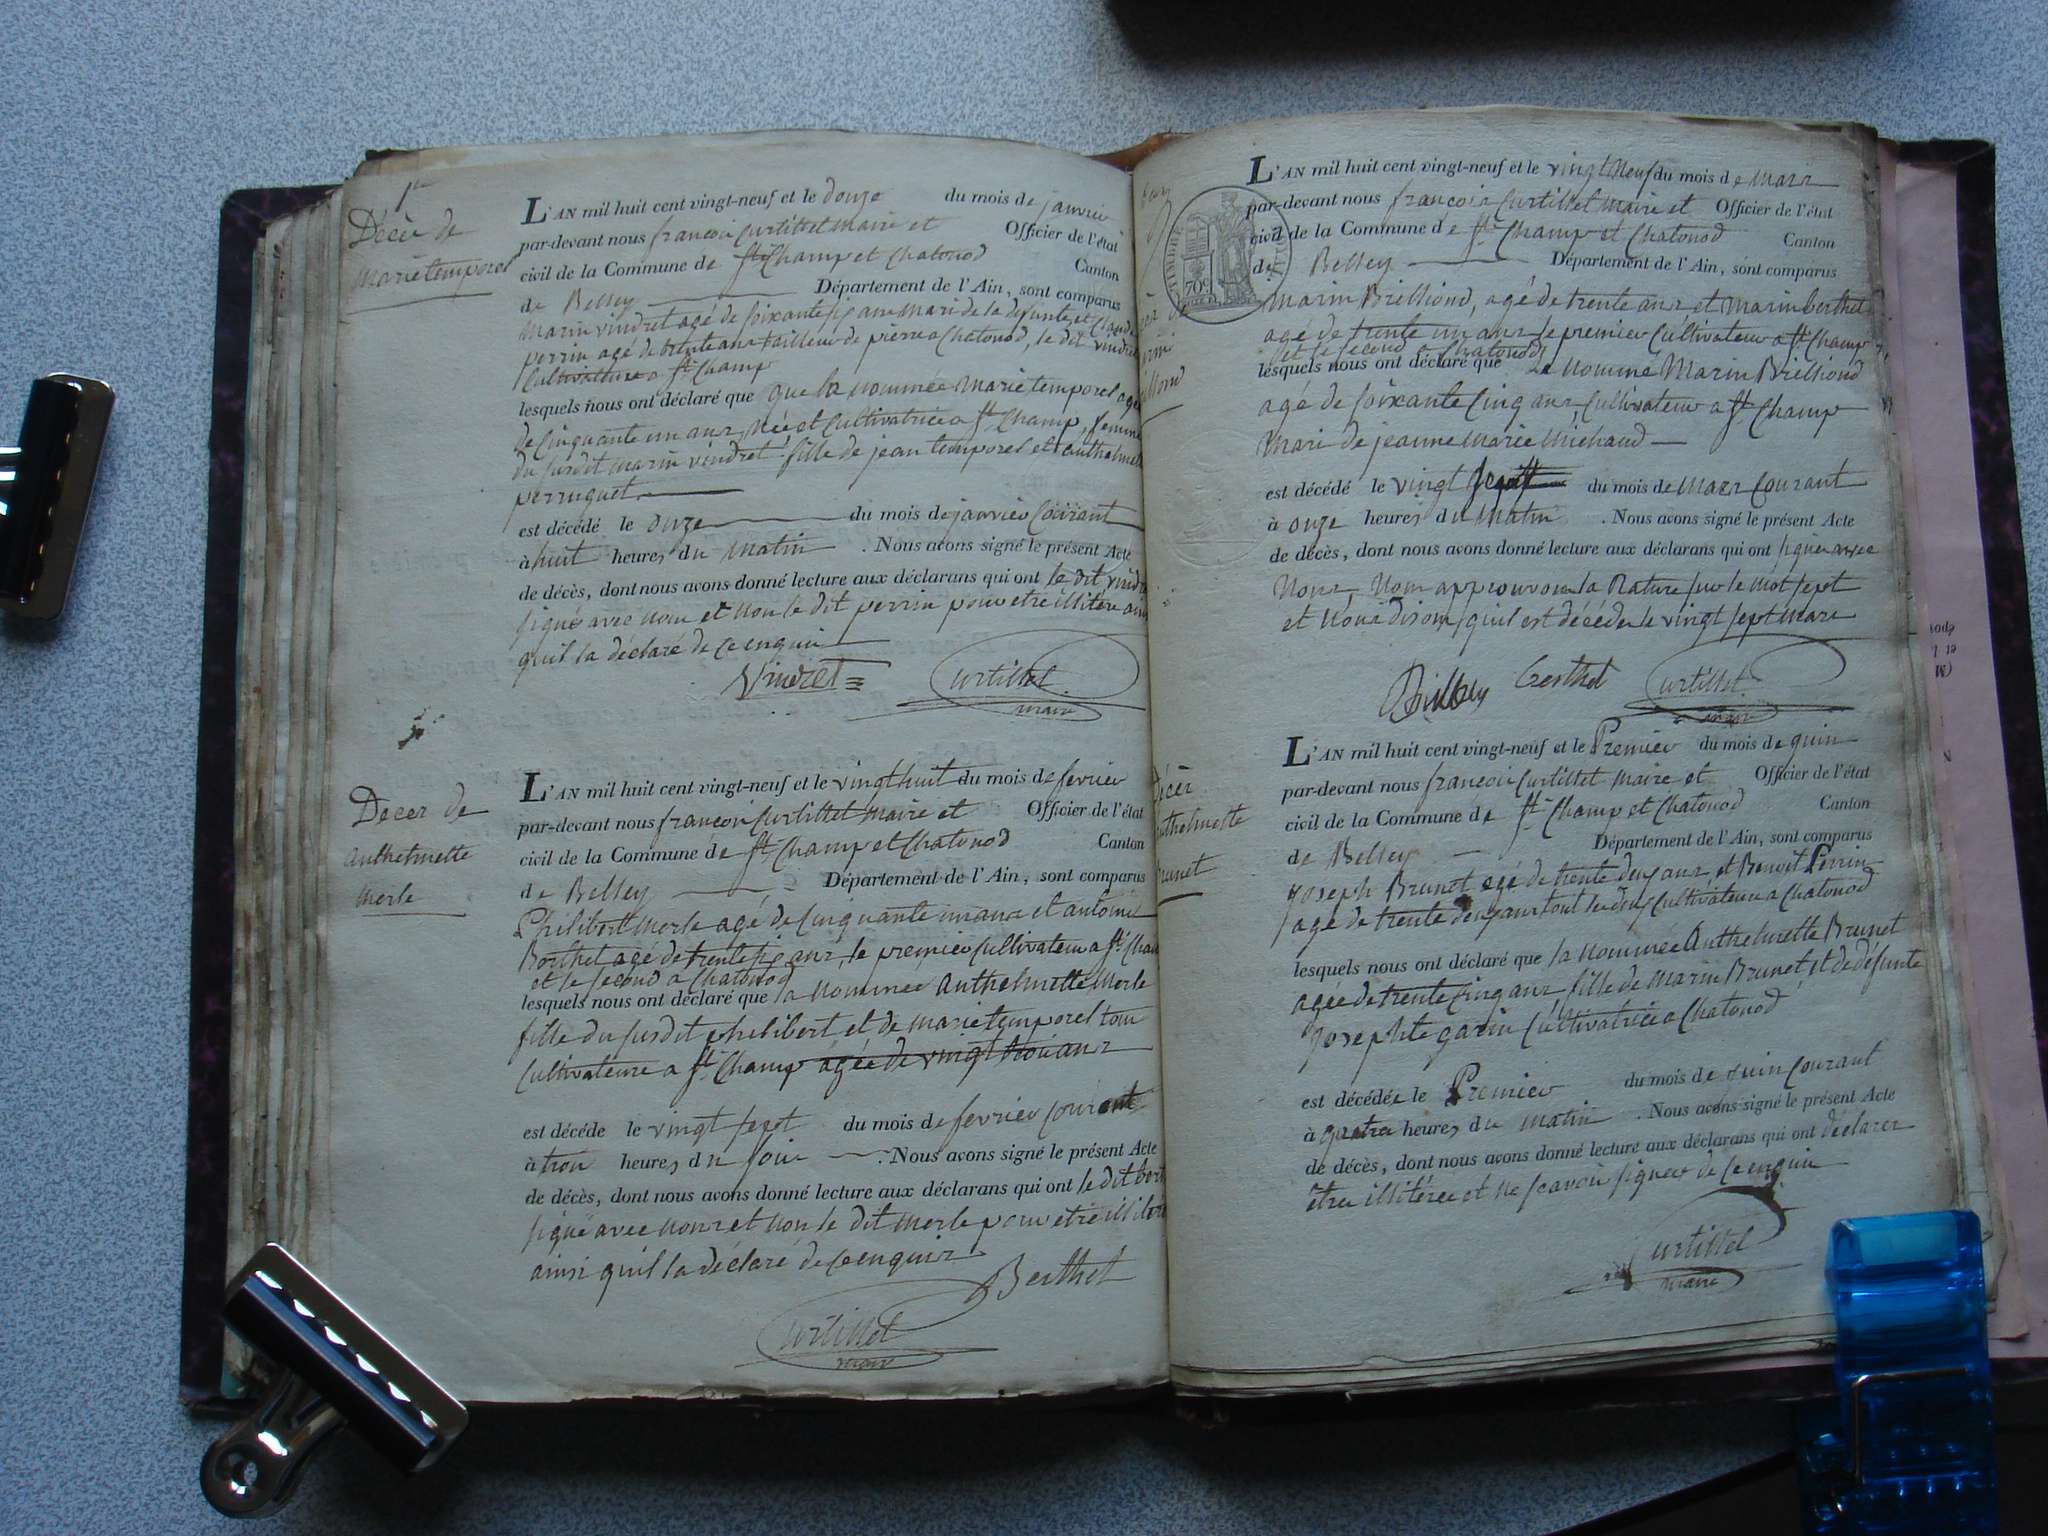 1er
Décès de
marie temporel
L'AN mil huit cent vingt-neuf et le douze du mois de janvier
par-devant nous francois Curtillet maire et Officier de l'état
civil de la Commune de St Champ et Chatonod Canton
de Belley Département de l'Ain, sont comparus
marin vindret agé de soixante six ans mari de la defunte et Claude
perrin agé de trente ans tailleur de pierre a Chatonod, le dit vindret
Cultivateur a St Champ
lesquels nous ont déclaré que que la nommée Marie temporel agée
de Cinquante un ans, Née et Cultivatrice a St Champ, femme
du susdit marin vindret fille de jean temporel et anthelmette
perruquet
est décédé le onze du mois de janvier Courant
à huit heures du matin . Nous avons signé le présent Acte
de décès, dont nous avons donné lecture aux déclarans qui ont le dit vindret
signé avec nous et non le dit perrin pour etre illitere ainsi
quil la déclaré de Ce enquis
Vindret Curtillet
maire
Deces de
anthelmette
Merle
L'AN mil huit cent vingt-neuf et le vingt huit du mois de fevrier
par-devant nous francois Curtillet maire et Officier de l'état
civil de la Commune de St Champ et Chatonod Canton
de Belley Département de l'Ain, sont comparus
Philibert Merle agé de Cinquante un ans et antoine
Berthet agé de trente six ans, le premier Cultivateur a St Champ
et le second a Chatonod
lesquels nous ont déclaré que la nommée Anthelmette Merle
fille du susdit philibert et de marie temporel tous
Cultivateurs a St Champ agée de vingt trois ans
est décédé le vingt sept du mois de fevrier courant
à trois heures du soir . Nous avons signé le présent Acte
de décès, dont nous avons donné lecture aux déclarans qui ont le dit bert
signé avec nous et non le dit Merle pour etre illitere
ainsi quil la déclaré de Ce enquis
Berthet
Curtillet
maire
TIMBRE
70c
L'AN mil huit cent vingt-neuf et le vingt Neuf du mois de Mars
par-devant nous francois Curtillet maire et Officier de l'état
civil de la Commune de St Champ et Chatonod Canton
de Belley Département de l'Ain, sont comparus
Marin Brilliond, agé de trente ans et Marin berthet
agé de trente un ans le premier Cultivateur a St Champ
et le second a Chatonod
lesquels nous ont déclaré que Le nommé Marin Brilliond
agé de soixante Cinq ans Cultivateur a St Champ
Mari de jeanne Marie Michaud
est décédé le vingt sept du mois de Mars Courant
à onze heures du matin . Nous avons signé le présent Acte
de décès, dont nous avons donné lecture aux déclarans qui ont signer avec
Nous, Nous approuvons la Rature sur le mot sept
et Nous disons quil est décéder le vingt sept Mars
berthet Curtillet
maire
Décès
anthelmette
Brunet
L'AN mil huit cent vingt-neuf et le Premier du mois de juin
par-devant nous francois Curtillet maire et Officier de l'état
civil de la Commune de St Champ et Chatonod Canton
de Belley Département de l'Ain, sont comparus
Joseph Brunet agé de trente deux ans, et Benoit Perrin
agé de trente deux ans tout les deux Cultivateur a Chatonod
lesquels nous ont déclaré que la nommée Anthelmette Brunet
agée de trente Cinq ans fille de Marin Brunet et de défunte
Josephte garin Cultivatrice a Chatonod
est décédée le Premier du mois de Juin Courant
à quatre heures du matin . Nous avons signé le présent Acte
de décès, dont nous avons donné lecture aux déclarans qui ont déclarer
être illitéree et ne scavoir signer de Ce enquis
Curtillet
maire